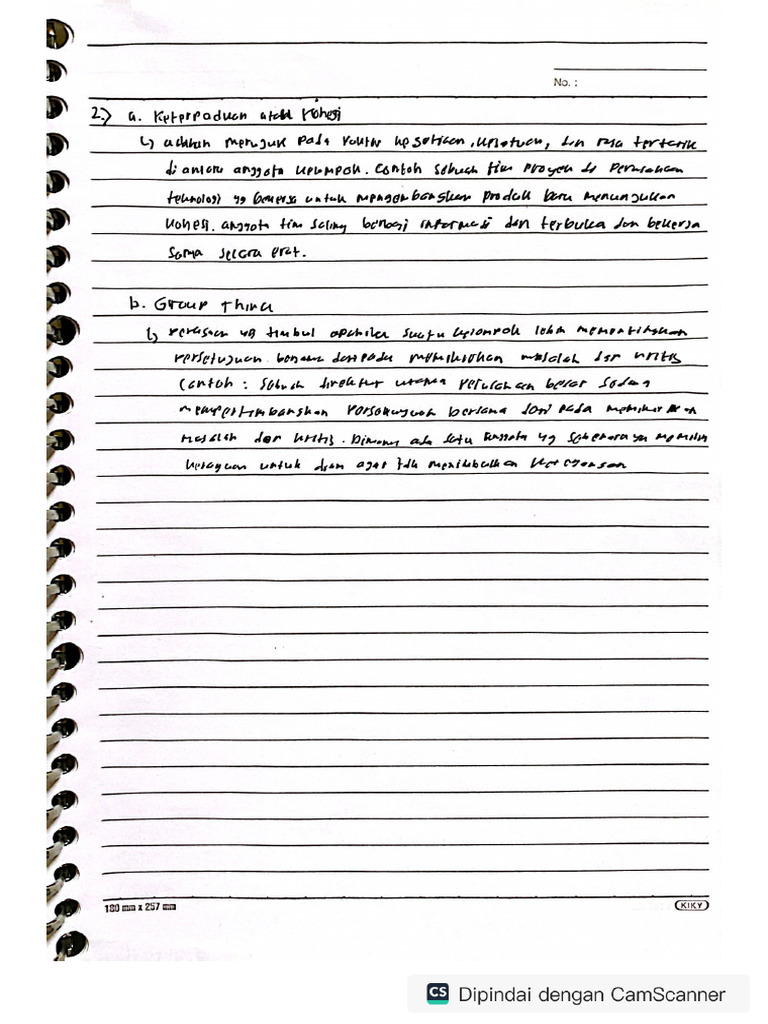 No. :
2.) a. Keterpaduan atau Kohesi
↳ adalah merujuk pada kesatuan, dan rasa tertarik
di antara anggota kelompok. Contoh sebuah tim proyek di Perusahaan
teknologi yg bekerja untuk mengembangkan produk baru menunjukan
kohesi. anggota tim saling berbagi informasi dan terbuka dan bekerja
sama secara erat.
b. Group Think
↳ perasaan yg timbul apabila suatu kelompok lebih mementingkan
persetujuan bersama daripada memikirkan masalah dgn kritis
Contoh : Sebuah direktur utama perusahaan besar sedang
mempertimbangkan bersama dari pada memikirkan
masalah dgn kritis. Dimana ada satu anggota yg sebenarnya memilih
untuk diam agar tdk menimbulkan
180 mm x 257 mm
KIKY
CS Dipindai dengan CamScanner